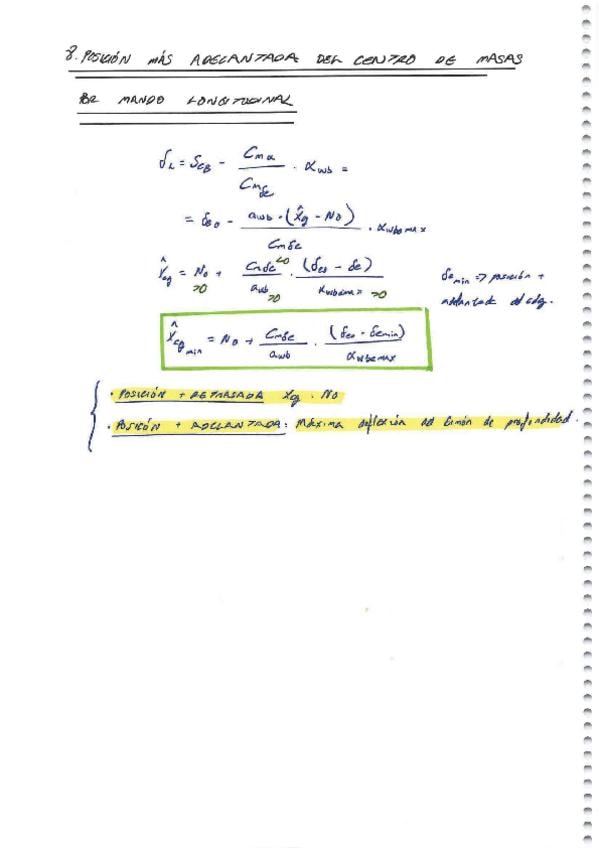 8. POSICIÓN MÁS ADELANTADA DEL CENTRO DE MASAS
POR MANDO LONGITUDINAL
= δe0 - awb · (x̂g - N0) / Cmδe · αwbmax
x̂cg = N0 + Cmδe / awb · (δe0 - δe) / αwbmax
<0
>0 >0 >0
δe min => posición +
adelantada del cdg.
x̂cg min = N0 + Cmδe / awb · (δe0 - δemin) / αwbmax
· POSICIÓN + RETRASADA xcg · N0
· POSICIÓN + ADELANTADA: Máxima deflexión del timón de profundidad.